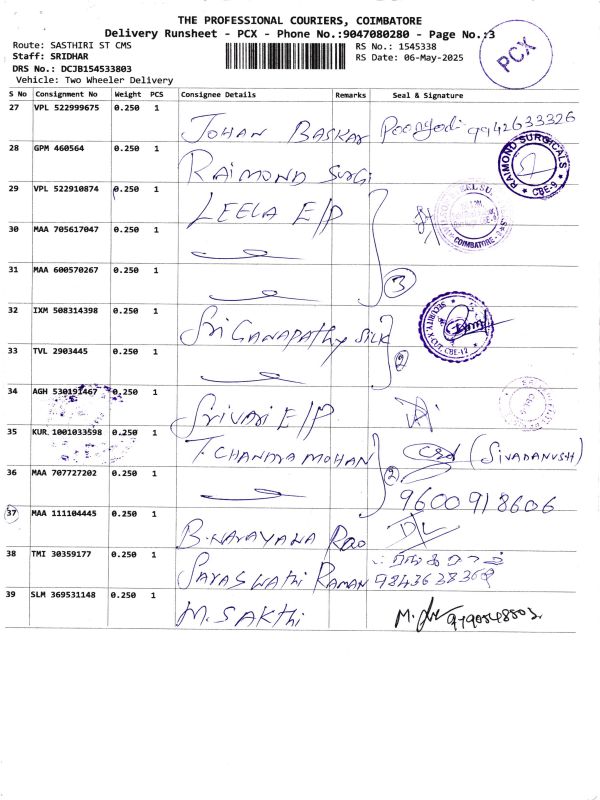 THE PROFESSIONAL COURIERS, COIMBATORE
Delivery Runsheet - PCX - Phone No.:9047080280 - Page No.:3
Route: SASTHIRI ST CMS
RS No.: 1545338
Staff: SRIDHAR
RS Date: 06-May-2025
DRS No.: DCJB154533803
Vehicle: Two Wheeler Delivery
PCX
S No Consignment No Weight PCS Consignee Details Remarks Seal & Signature
27 VPL 522999675 0.250 1 JOHAN BASKAR 9942633326
28 GPM 460564 0.250 1 RAIMOND SURGI RAIMOND SURGICALS CBE-9
29 VPL 522910874 0.250 1 LEELA E/P COIMBATORE
30 MAA 705617047 0.250 1
31 MAA 600570267 0.250 1 3
32 IXM 508314398 0.250 1 Sri GANAPATHY SILK
33 TVL 2903445 0.250 1 2 CBE-12
34 AGH 530191467 0.250 1 SRIVARI E/P
35 KUR 1001033598 0.250 1 T. CHANDRA MOHAN (SIVADANUSH)
36 MAA 707727202 0.250 1 2 9600918606
37 MAA 111104445 0.250 1 B. NARAYANA RAO
38 TMI 30359177 0.250 1 SARASWATHI RAMAN 9843638368
39 SLM 369531148 0.250 1 M. SAKTHI